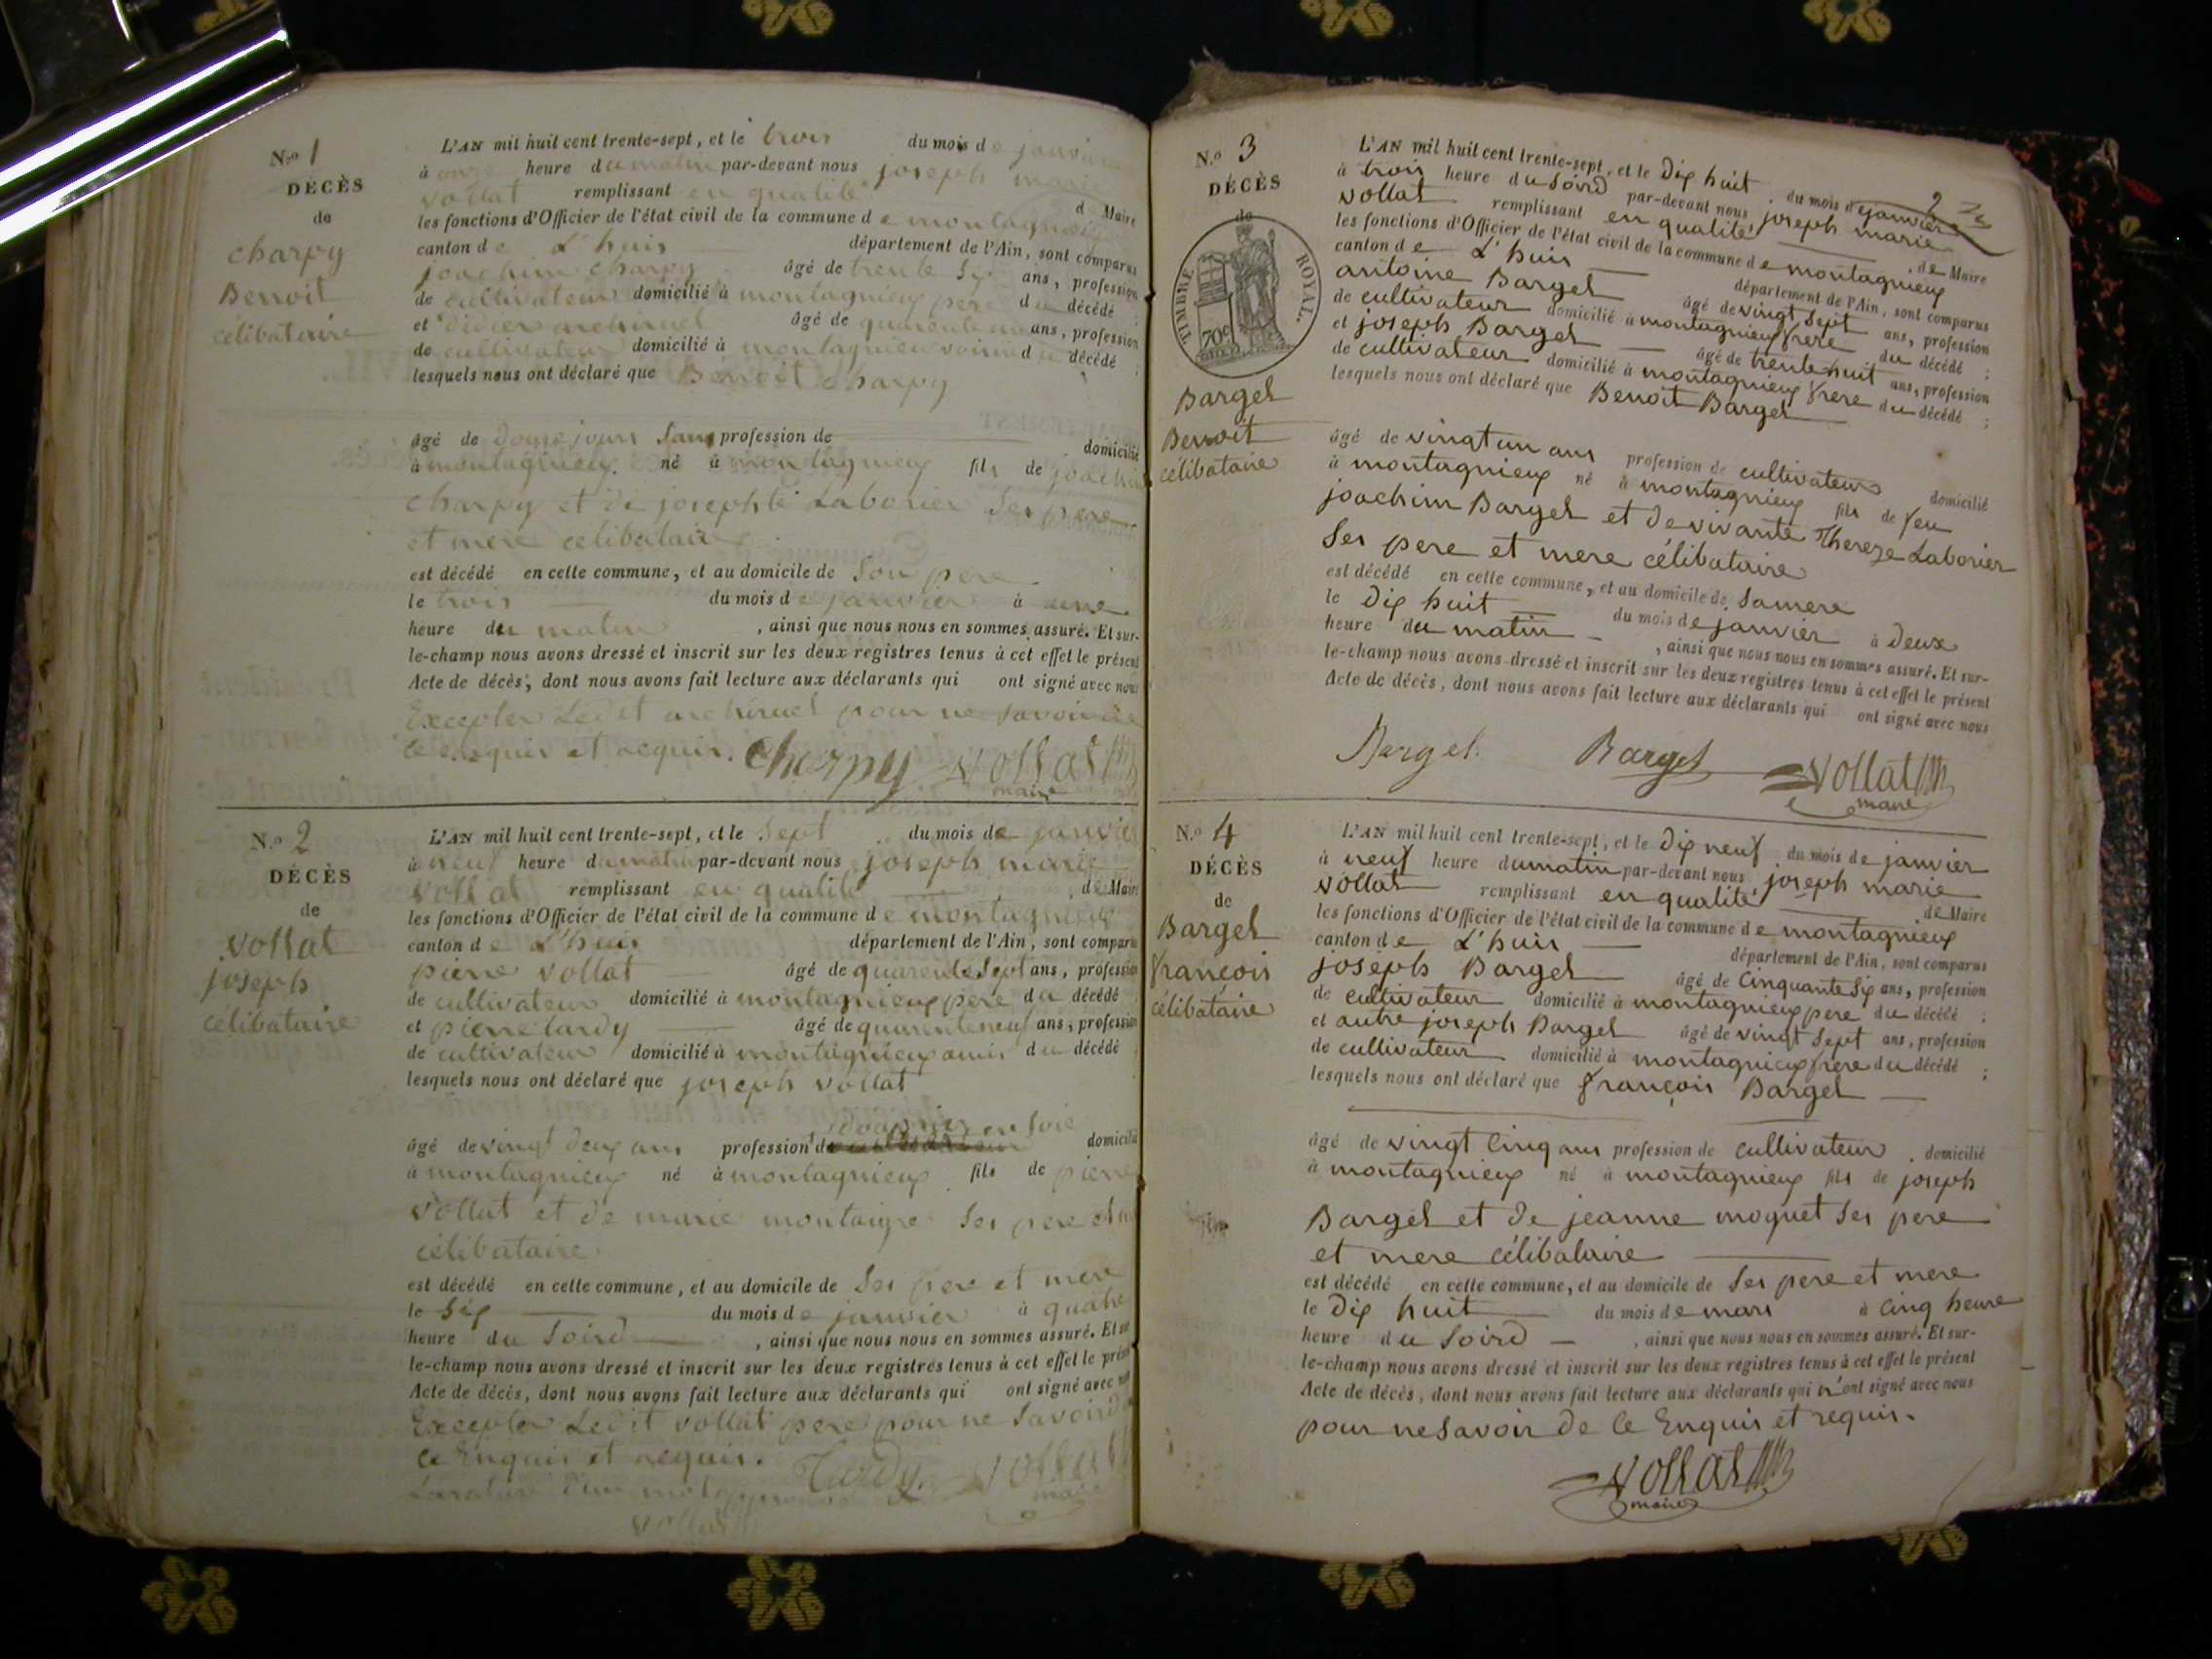 N.o 1
DÉCÈS
de
charpy
Benoit
célibataire
L'AN mil huit cent trente-sept, et le trois du mois de janvier
à onze heure du matin par-devant nous joseph marie
vollat remplissant en qualité de Maire
les fonctions d'Officier de l'état civil de la commune de montagnieu
canton de L'huis département de l'Ain, sont comparus
joachim charpy âgé de trente six ans, profession
de cultivateur domicilié à montagnieux pere du décédé ;
et didier âgé de quarente ans, profession
de cultivateur domicilié à montagnieu voisin du décédé ;
lesquels nous ont déclaré que Benoit charpy
âgé de douze jours Sans profession de domicilié
à montagnieux né à montagnieux fils de joachim
charpy et de josephte Laborier Ses pere
et mere celibataire
est décédé en cette commune, et au domicile de Son pere
le trois du mois de janvier à une
heure du matin , ainsi que nous nous en sommes assuré. Et sur-
le-champ nous avons dressé et inscrit sur les deux registres tenus à cet effet le présent
Acte de décès, dont nous avons fait lecture aux déclarants qui ont signé avec nous
Excepter Ledit pour ne Savoir de
ce enquis et requis. Charpy vollat
maire
N.o 2
DÉCÈS
de
vollat
joseph
célibataire
L'AN mil huit cent trente-sept, et le Sept du mois de janvier
à neuf heure du matin par-devant nous joseph marie
vollat remplissant en qualité de Maire
les fonctions d'Officier de l'état civil de la commune de montagnieux
canton de L'huis département de l'Ain, sont comparus
pierre vollat âgé de quarente Sept ans, profession
de cultivateur domicilié à montagnieux pere du décédé
et pierre tardy âgé de quarente neuf ans, profession
de cultivateur domicilié à montagnieux amis du décédé
lesquels nous ont déclaré que joseph vollat
en Soie
âgé de vingt deux ans profession de domicilié
à montagnieux né à montagnieux fils de pierre
vollat et de marie montaigre Ses pere et
célibataire
est décédé en cette commune, et au domicile de Ses pere et mere
le Six du mois de janvier à quatre
heure du Soird , ainsi que nous nous en sommes assuré. Et sur
le-champ nous avons dressé et inscrit sur les deux registres tenus à cet effet le présent
Acte de décès, dont nous avons fait lecture aux déclarants qui ont signé avec nous
Excepter Ledit vollat pere pour ne Savoir de
ce Enquis et requis. Tardy vollat
maire
vollat
2
N.o 3
DÉCÈS
de
TIMBRE ROYAL.
70c
Barget
Benoit
célibataire
L'AN mil huit cent trente-sept, et le Dix huit du mois de janvier
à trois heure du Soird par-devant nous joseph marie
vollat remplissant en qualité de Maire
les fonctions d'Officier de l'état civil de la commune de montagnieux
canton de L'huis département de l'Ain, sont comparus
antoine Barget âgé de vingt Sept ans, profession
de cultivateur domicilié à montagnieux frere du décédé ;
et joseph Barget âgé de trente huit ans, profession
de cultivateur domicilié à montagnieux frere du décédé ;
lesquels nous ont déclaré que Benoit Barget
âgé de vingt un ans profession de cultivateur domicilié
à montagnieux né à montagnieux fils de feu
joachim Barget et de vivante Thereze Laborier
Ses pere et mere célibataire
est décédé en cette commune, et au domicile de Sa mere
le Dix huit du mois de janvier à Deux
heure du matin , ainsi que nous nous en sommes assuré. Et sur-
le-champ nous avons dressé et inscrit sur les deux registres tenus à cet effet le présent
Acte de décès, dont nous avons fait lecture aux déclarants qui ont signé avec nous
Barget. Barget vollat
maire
N.o 4
DÉCÈS
de
Barget
françois
célibataire
L'AN mil huit cent trente-sept, et le Dix neuf du mois de janvier
à neuf heure du matin par-devant nous joseph marie
vollat remplissant en qualité de Maire
les fonctions d'Officier de l'état civil de la commune de montagnieux
canton de L'huis département de l'Ain, sont comparus
joseph Barget âgé de Cinquante Six ans, profession
de cultivateur domicilié à montagnieux pere du décédé ;
et autre joseph Barget âgé de vingt Sept ans, profession
de cultivateur domicilié à montagnieux frere du décédé ;
lesquels nous ont déclaré que françois Barget
âgé de vingt Cinq ans profession de cultivateur domicilié
à montagnieux né à montagnieux fils de joseph
Barget et de jeanne moquet Ses pere
et mere célibataire
est décédé en cette commune, et au domicile de Ses pere et mere
le Dix huit du mois de mars à Cinq heure
heure du Soird , ainsi que nous nous en sommes assuré. Et sur-
le-champ nous avons dressé et inscrit sur les deux registres tenus à cet effet le présent
Acte de décès, dont nous avons fait lecture aux déclarants qui n'ont signé avec nous
pour ne Savoir de Ce Enquis et requis.
vollat
maire